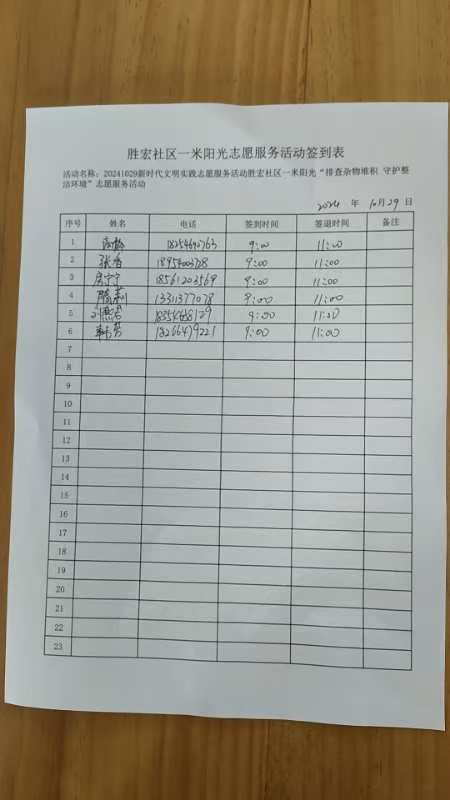 胜宏社区一米阳光志愿服务活动签到表
活动名称：20241029新时代文明实践志愿服务活动胜宏社区一米阳光“排查杂物堆积 守护整
洁环境”志愿服务活动
2024 年 10月29日
序号 姓名 电话 签到时间 签退时间 备注
1 9:00 11:00
2 张香 9:00 11:00
3 房宁宁 18561203569 9:00 11:00
4 13311377078 9:00 11:00
5 9:00 11:00
6 韩芳 18266479221 9:00 11:00
7
8
9
10
11
12
13
14
15
16
17
18
19
20
21
22
23